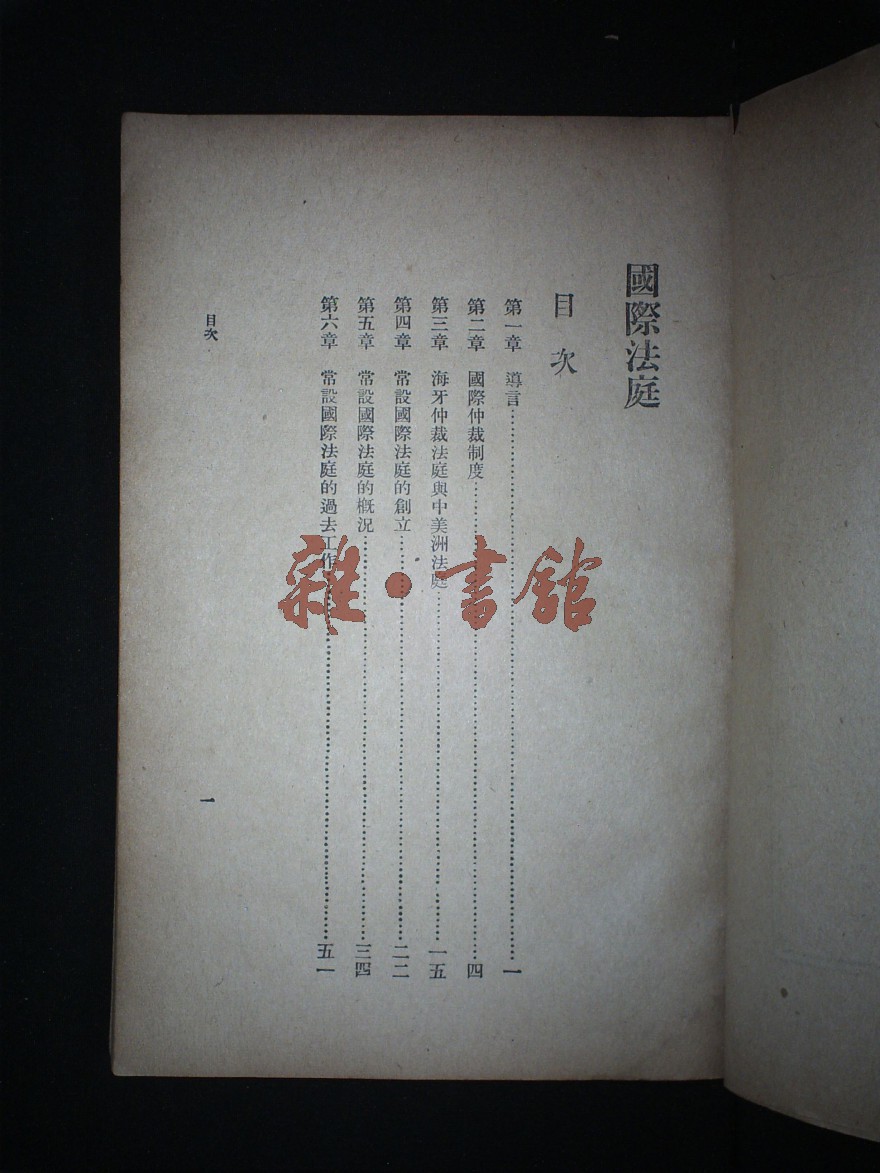 國際法庭
目次
第一章 導言……一
第二章 國際仲裁制度……四
第三章 海牙仲裁法庭與中美洲法庭……一五
第四章 常設國際法庭的創立……二二
第五章 常設國際法庭的概況……三四
第六章 常設國際法庭的過去工作……五一
目次
一
雜·書舘